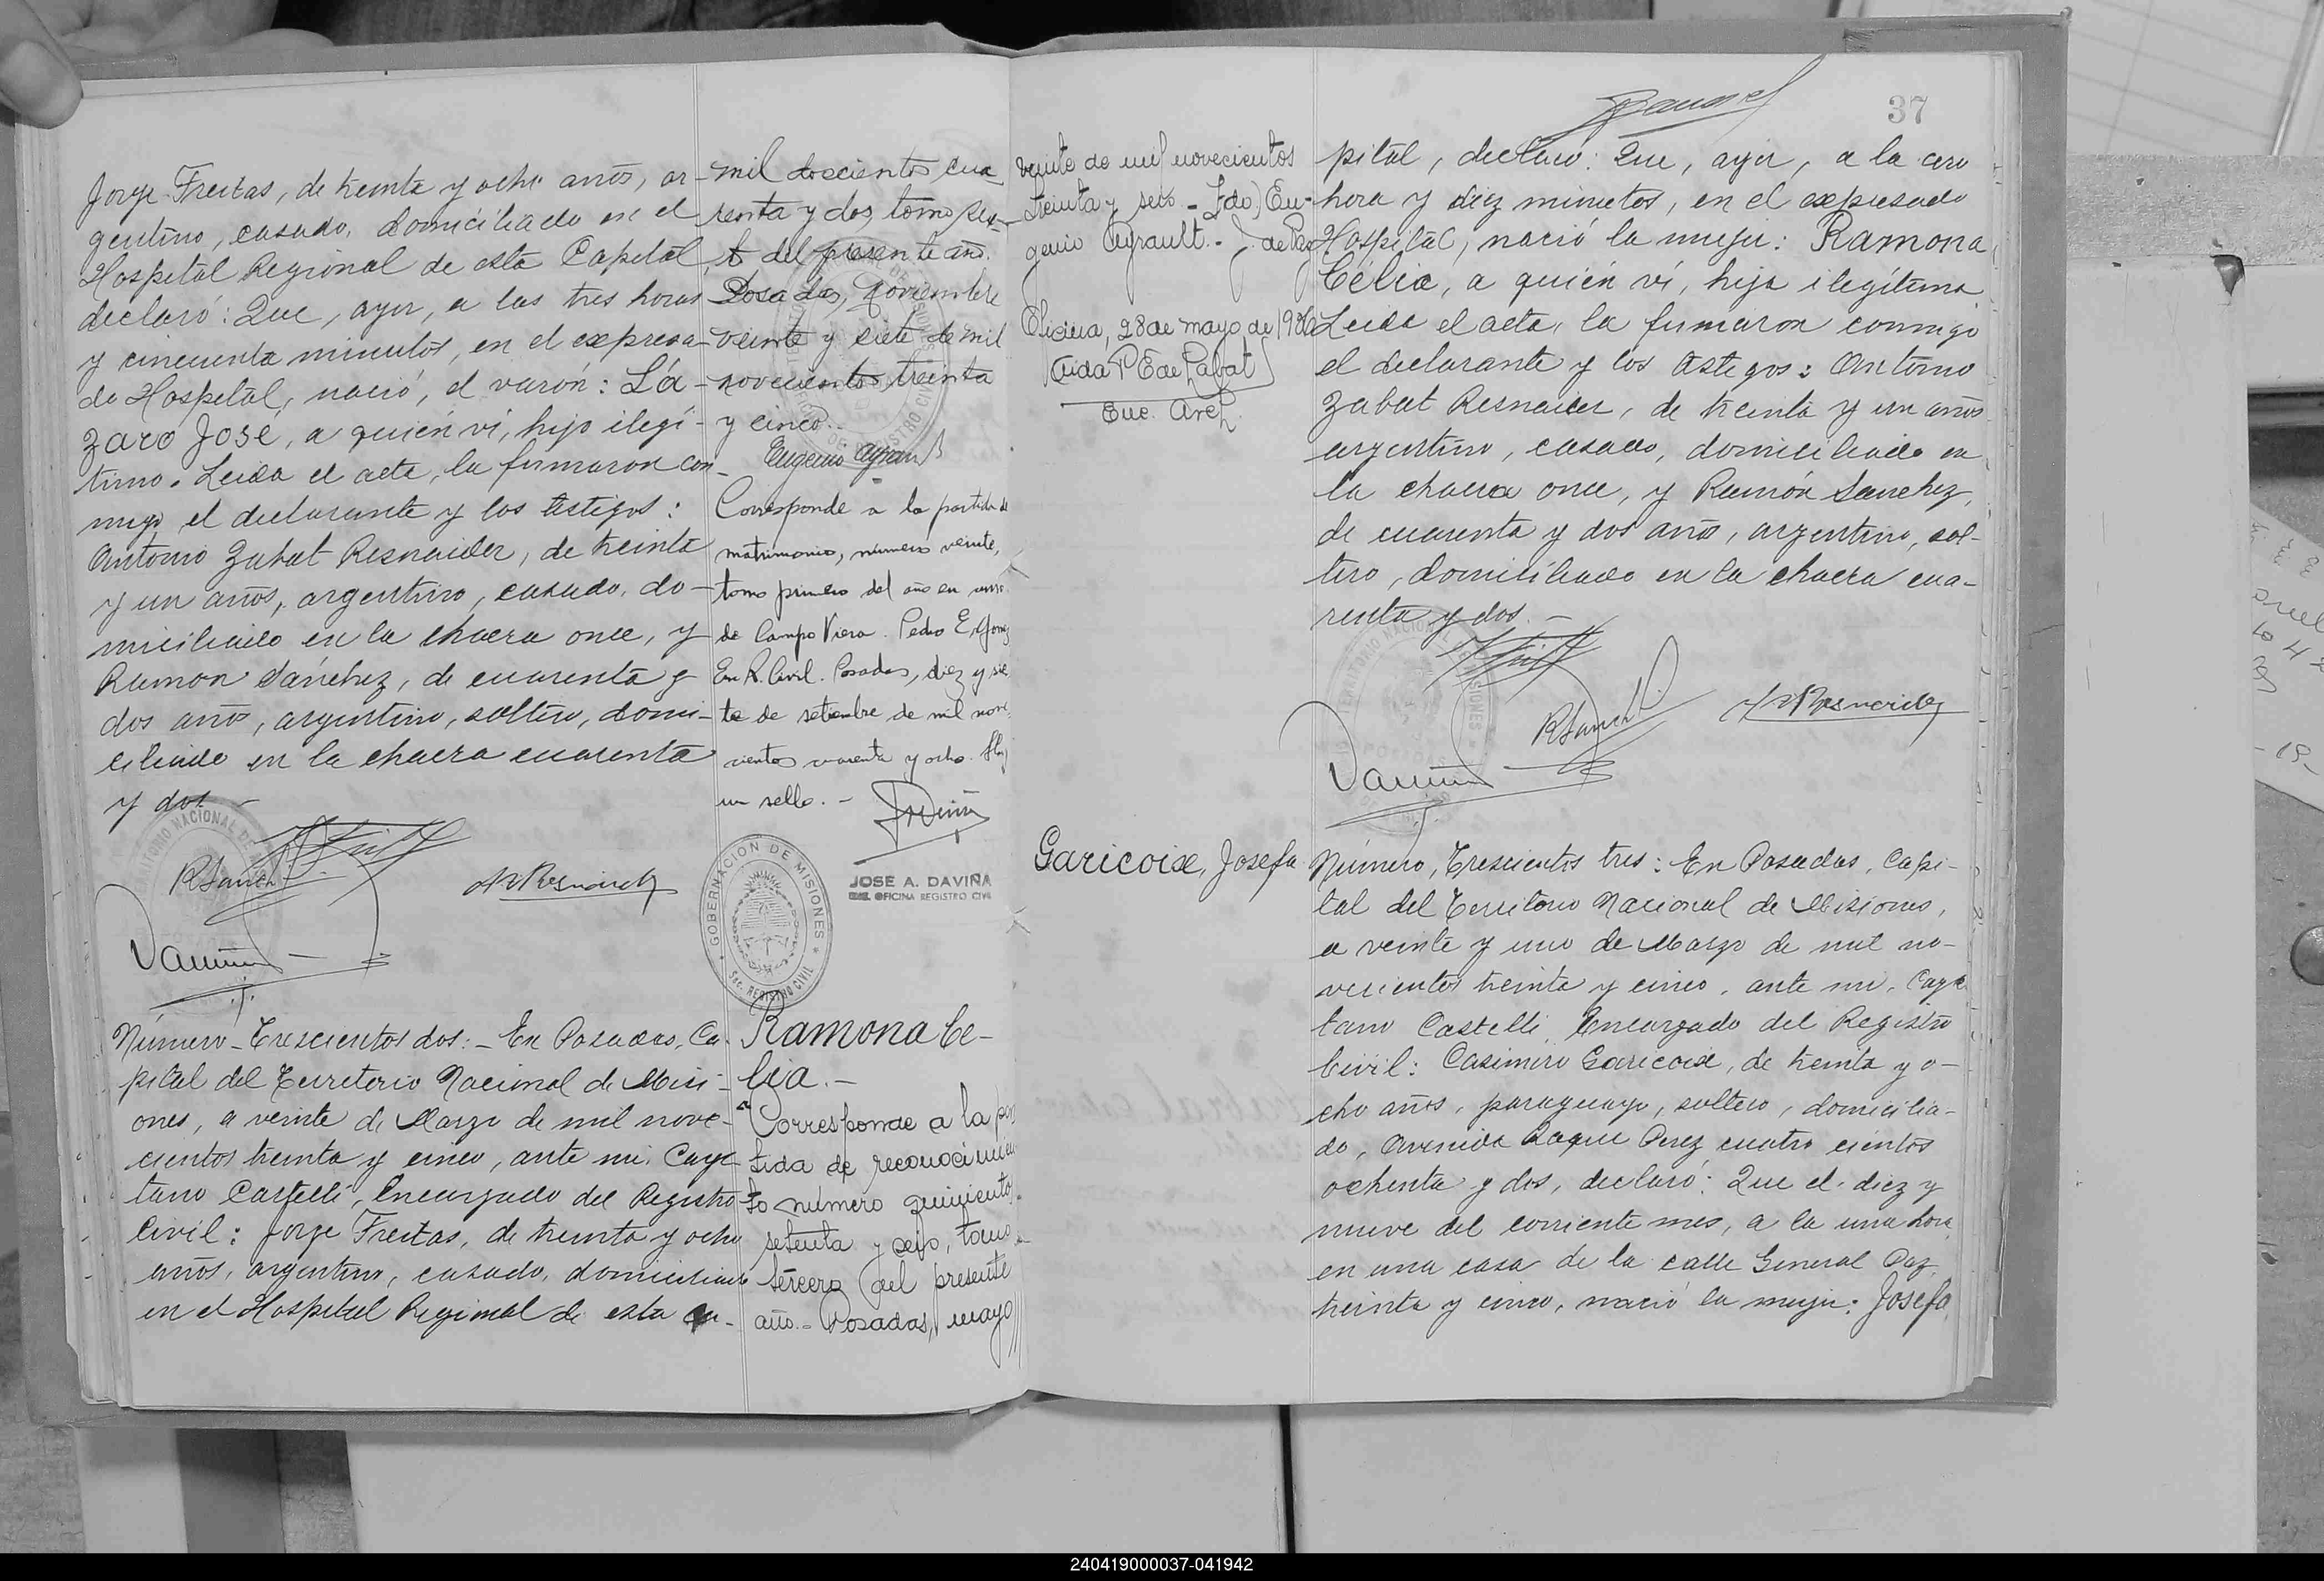 Jorge Freitas, de treinta y ocho años, ar-
gentino, casado, domiciliado en el
Hospital Regional de esta Capital,
declaró: Que, ayer, a las tres horas
y cincuenta minutos, en el expresa-
do Hospital, nació, el varón: Lá-
zaro José, a quién ví, hijo ilegí-
timo. Leida el acta, la firmaron con-
migo el declarante y los testigos:
Antonio Zabat Resnaider, de treinta
y un años, argentino, casado, do-
miciliado en la chacra once, y
Ramon Sánchez, de cuarenta y
dos años, argentino, soltero, domi-
ciliado en la chacra cuarenta
y dos.-
mil doscientos cua
renta y dos, tomo sex-
t del presente año.
Posadas, Noviembre
veinte y siete de mil
novecientos treinta
y cinco.
Eugenio
Corresponde a la partida de
matrimonio, número veinte,
tomo primero del año en curso
de Campo Viera. Pedro E.
En. R. Civil. Posadas, diez y sie
te de setiembre de mil nove
cientos cuarenta y ocho. Hay
un sello.-
GOBERNACION DE MISIONES
Sec. REGISTRO CIVIL
JOSE A. DAVIÑA
OFICINA REGISTRO CIVIL
Número-Trescientos dos:- En Posadas, Ca-
pital del Territorio Nacional de Misi-
ones, a veinte de Marzo de mil nove-
cientos treinta y cinco, ante mi, Caye-
tano Castelli, Encargado del Registro
Civil: Jorge Freitas, de treinta y ocho
años, argentino, casado, domiciliado
en el Hospital Regional de esta
Ramona Ce-
lia.-
Corresponde a la par
tida de reconocimien
to número quinientos
setenta y seis, tomo
tercero del presente
año.- Posadas, mayo
veinte de mil novecientos
treinta y seis - Fdo) Eu-
genio
Oficina, 28 de mayo de
Enc. Arch.
37
pital, declaró: Que, ayer, a la cero
hora y diez minutos, en el expresado
Hospital, nació la mujer: Ramona
Célia, a quién ví, hija ilegítima
Leida el acta, la firmaron conmigo
el declarante y los testigos: Antonio
Zabat Resnaider, de treinta y un años
argentino, casado, domiciliado en
la chacra once, y Ramón Sanchez,
de cuarenta y dos años, argentino, sol-
tero, domiciliado en la chacra cua-
renta y dos.-
Garicoix, Josefa
Número, Trescientos tres: En Posadas, Capi-
tal del Territorio Nacional de Misiones,
a veinte y uno de Marzo de mil no-
vecientos treinta y cinco, ante mi, Caye
tano Castelli, Encargado del Registro
Civil: Casimiro Garicoix, de treinta y o-
cho años, paraguayo, soltero, domicilia-
do, Avenida Roque Perez cuatro cientos
ochenta y dos, declaró: Que el diez y
nueve del corriente mes, a la una hora,
en una casa de la calle General Paz,
treinta y cinco, nació la mujer: Josefa,
240419000037-041942